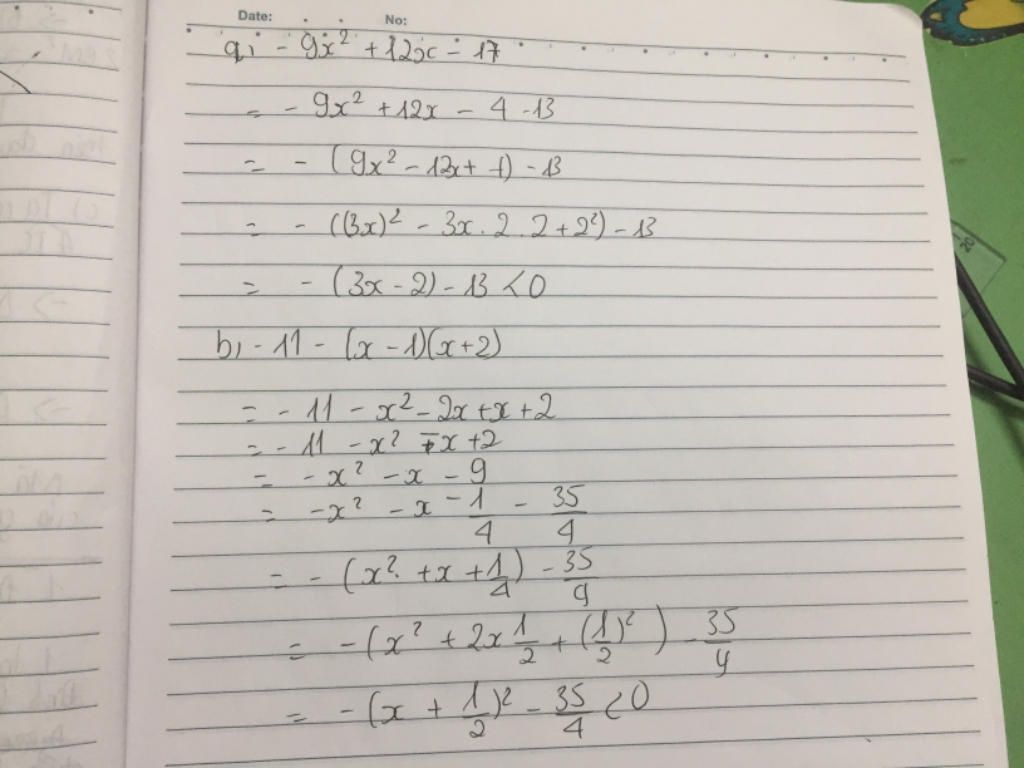 Date: No:
a, - 9x² + 12x - 17
= - 9x² + 12x - 4 - 13
= - (9x² - 12x + 1) - 13
= - ((3x)² - 3x . 2 . 2 + 2²) - 13
= - (3x - 2) - 13 < 0
b, - 11 - (x - 1)(x + 2)
= - 11 - x² - 2x + x + 2
= - 11 - x² - x + 2
= - x² - x - 9
= - x² - x - 1/4 - 35/4
= - (x² + x + 1/4) - 35/9
= - (x² + 2x 1/2 + (1/2)²) - 35/4
= - (x + 1/2)² - 35/4 < 0